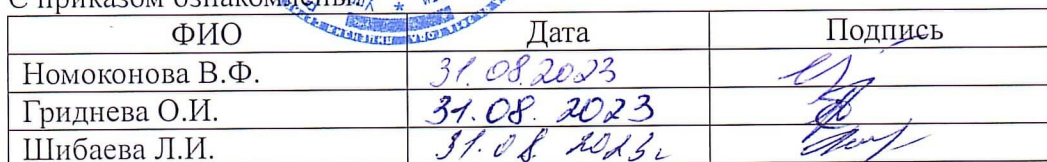 С приказом ознакомлены
ФИО Дата Подпись
Номоконова В.Ф. 31.08.2023
Гриднева О.И. 31.08.2023
Шибаева Л.И. 31.08.2023г